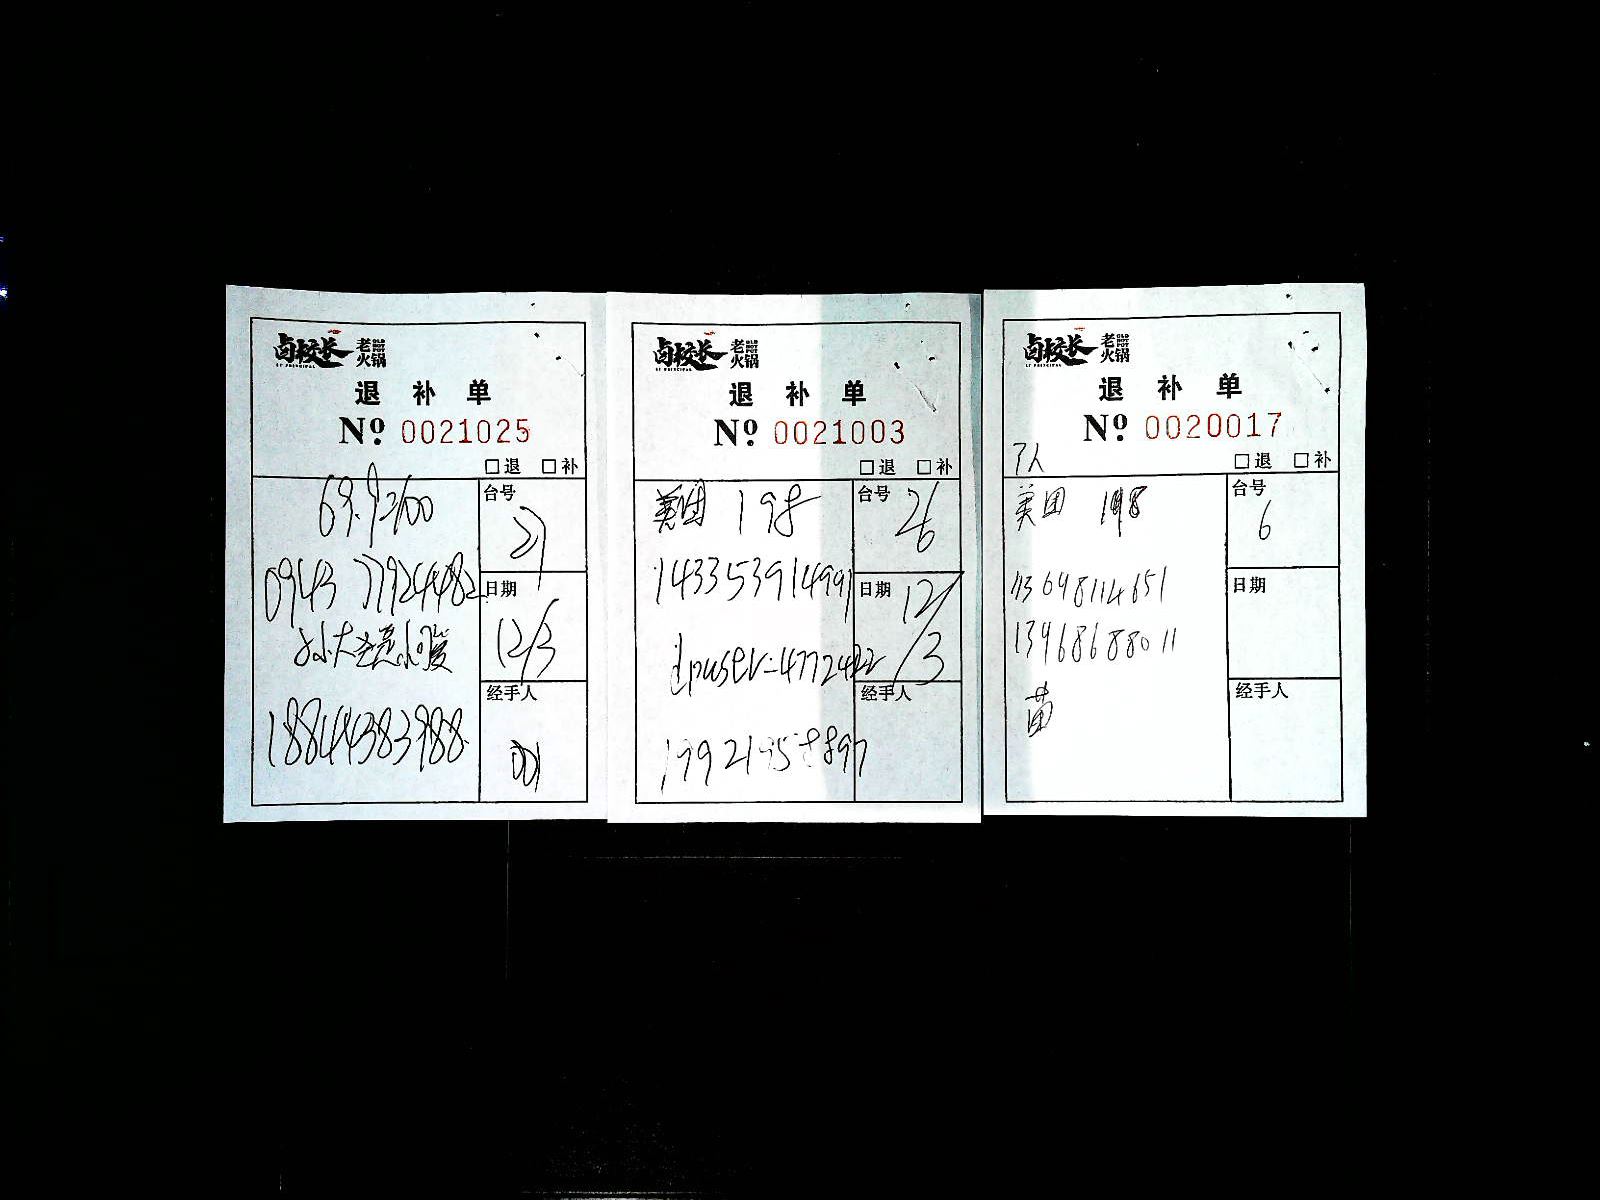 卤校长 老火锅
LU PRINCIPAL
退补单
Nº 0021025
□退 □补
69.9=100
台号
27
0943 77924482
日期
12/3
孙大圣
经手人
18844383988
卤校长 老火锅
LU PRINCIPAL
退补单
Nº 0021003
□退 □补
美团 198
台号
26
143353914991
日期
12/3
dpuser=4772422
经手人
卤校长 老火锅
LU PRINCIPAL
退补单
Nº 0020017
□退 □补
美团 198
台号
6
日期
13468688011
经手人
苗